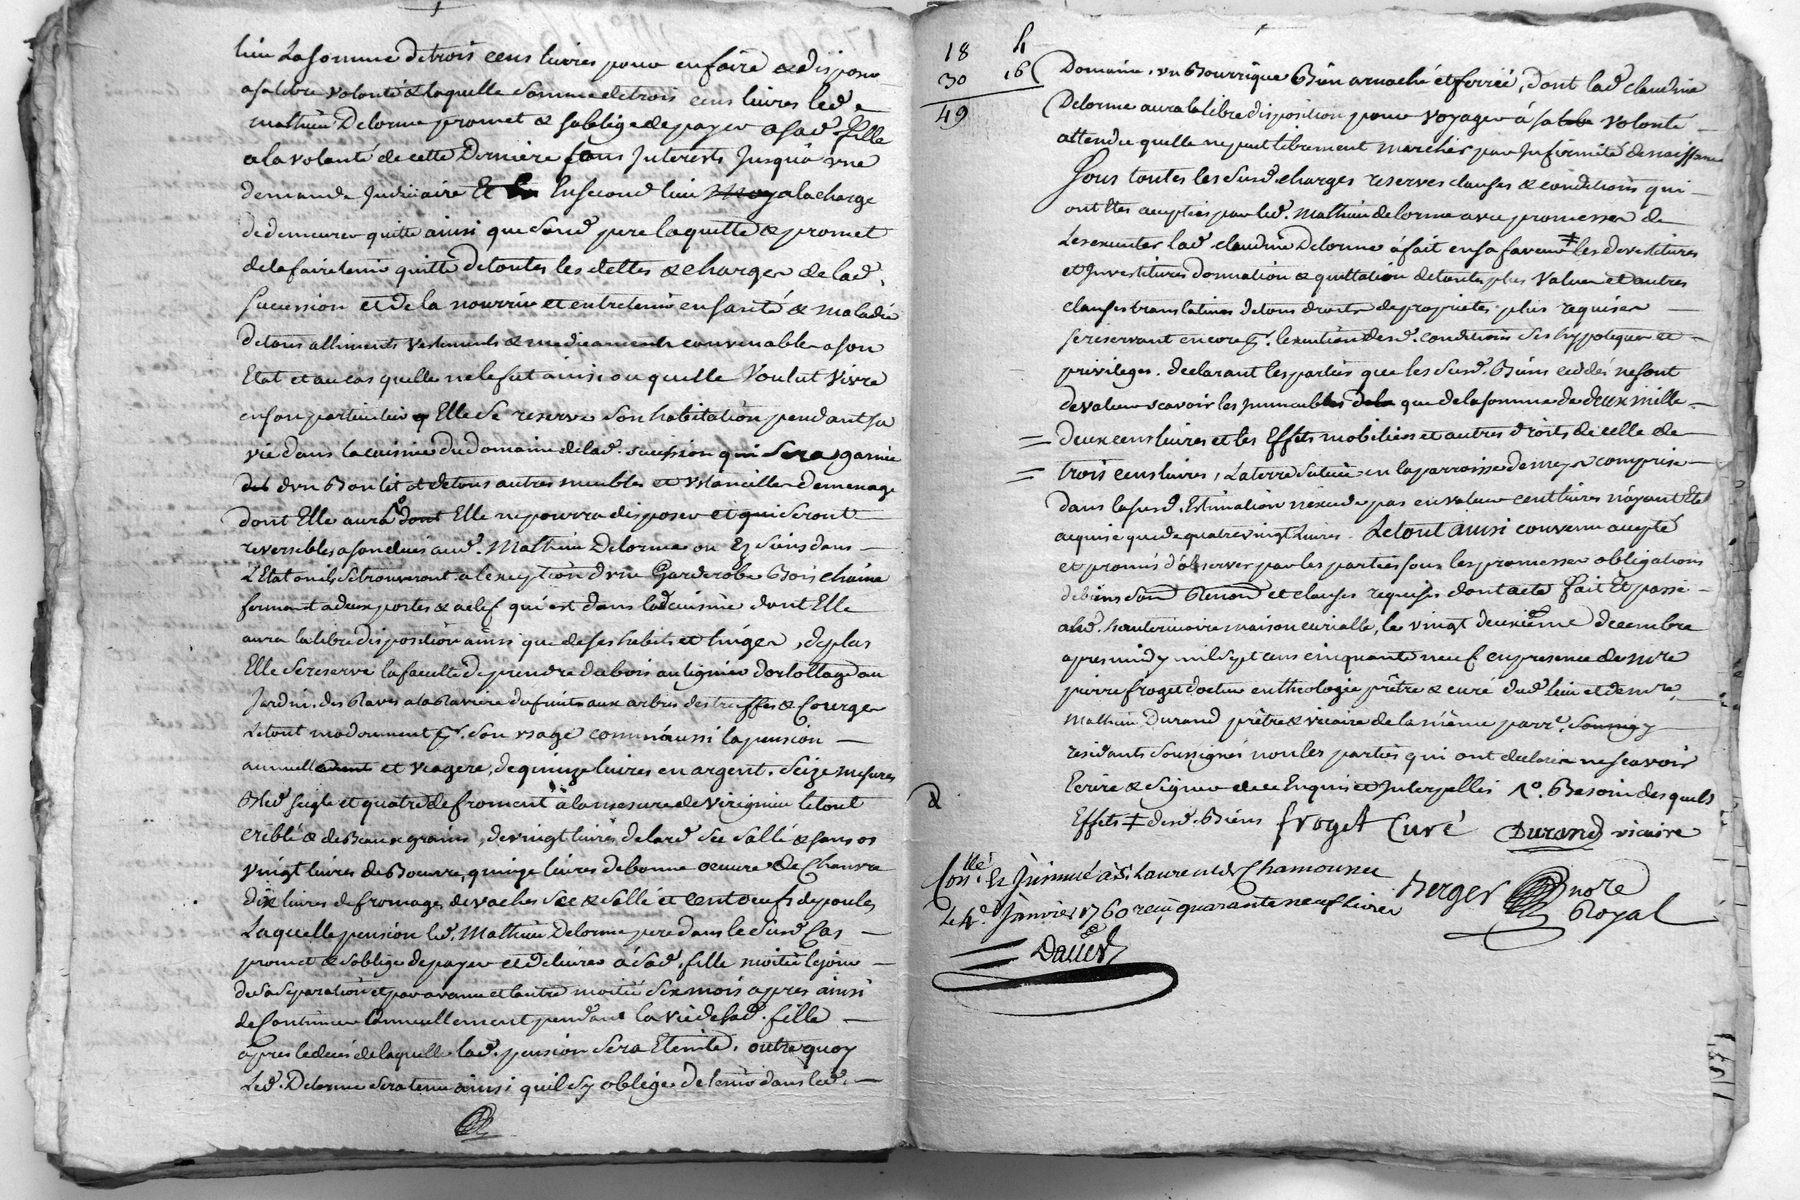 lieu la somme de trois cens livres pour en faire & disposer
a sa libre volonté & laquelle somme de trois cens livres led.
Mathieu Delorme promet & soblige de payer a sad. fille
a la volonté de cette Derniere sans Interests Jusqu'à une
demande Judiciaire Et En second lieu a la charge
de demeurer quitte ainsi que sond. pere laquitte & promet
de la faire tenir quitte de toutes les dettes & charges de lad.
sucession et de la nourrir et entretenir en santé & maladie
de tous alliments vestements & medicaments convenables a son
Etat et au cas quelle ne le fut ainsi ou quelle Voulut Vivre
en son particulier Elle se reserve son habitation pendant sa
vie dans la cuisine du domaine de lad. sucession qui sera garnie
dun Bon lit et de tous autres meubles et Ustancilles de menage
dont Elle aura dont Elle ne pourra disposer et qui seront
reversibles a son deces aud. Mathieu Delorme ou Es siens dans
L'Etat ou ils se trouveront a l'exception d'une Garderobe Bois chaine
fermant a deux portes & a clef qui est dans lad. cuisine dont Elle
aura la libre disposition ainsi que de ses habits et linges, de plus
Elle se reserve la faculté de prendre du bois au lignier dortollage au
Jardin, des Raves a la Raviere du fruits aux arbres des truffes & Courges
Le tout modorement pr. son usage comm'aussi la pension
annuelle et viagere, de quinze livres en argent, seize mesures
Bled seigle et quatre de froment à la mesure de Virignieu le tout
criblé & de Beaux grains, de vingt livres de lard sec sallé & sans os
vingt livres de Beurre, quinze livres de bonne oeuvre de Chanvre
dix livres de fromage de vaches sec & sallé et cent oeufs de poules
Laquelle pension led. Mathieu Delorme pere dans le susd. Cas
promet & soblige de payer et delivrer à sad. fille moitié le jour
de sa separation et par avance et l'autre moitié six mois apres ainsi
de Continuer annuellement pendant la vie de sad. fille
apres le deces de laquelle lad. pension sera Eteinte. outre quoy
Led. Delorme sera tenu ainsi quil sy oblige de tenir dans led.
18 4
30 16
49
Domaine, un Bourrique Bien arnaché et ferreé, dont lad. claudine
Delorme aura la libre disposition pour voyager à sa volonté
attendu quelle ne peut librement marcher par Infirmité de naissance
Sous toutes lesusd. charges reserves clauses & conditions qui
ont Etes aceptées par led. Mathieu delorme avec promesses de
Les executer lad. claudine Delorme à fait en sa faveur ‡ les devestitures
et Investitures donnation & quittation de toutes plus Value et autres
clauses translatives de tous droits de proprietés plus requises
se reservant encore pr. l'execution desd. conditions ses hyppoteques et
privileges. declarant les parties que les susd. Biens cedés ne sont
de valeur scavoir les Immeubles que de la somme de deux mille
deux cens livres et les Effets mobiliers et autres droits de celle de
trois cens livres, La terre située en la parroisse de meys comprise
dans la susd. Estimation n'excede pas en valeur cent livres n'ayant Eté
acquise que de quatre vingt livres. Le tout ainsi convenu acepté
et promis d'observer par les parties sous les promesses obligations
de biens soud. Renond. et clauses requises dont acte fait Et passé
aud. maison curialle, le vingt deuxième decembre
apres midy mil sept cens cinquante neuf en presence de mre
pierre froget docteur en theologie prêtre & curé dud. lieu et de mre.
Mathieu Durand prêtre & vicaire de la même parr.e
residants soussignés non les parties qui ont declaré ne scavoir
Ecrire & signer de ce Enquis et Interpellés Besoin desquels
Effets ‡ desd. Biens froget Curé Durand vicaire
Con.llé Et Jnsinué à St. Laurent de Chamousset Berger nore Royal
Le 4e. Janvier 1760 reçu quarante neuf livres
Dauer